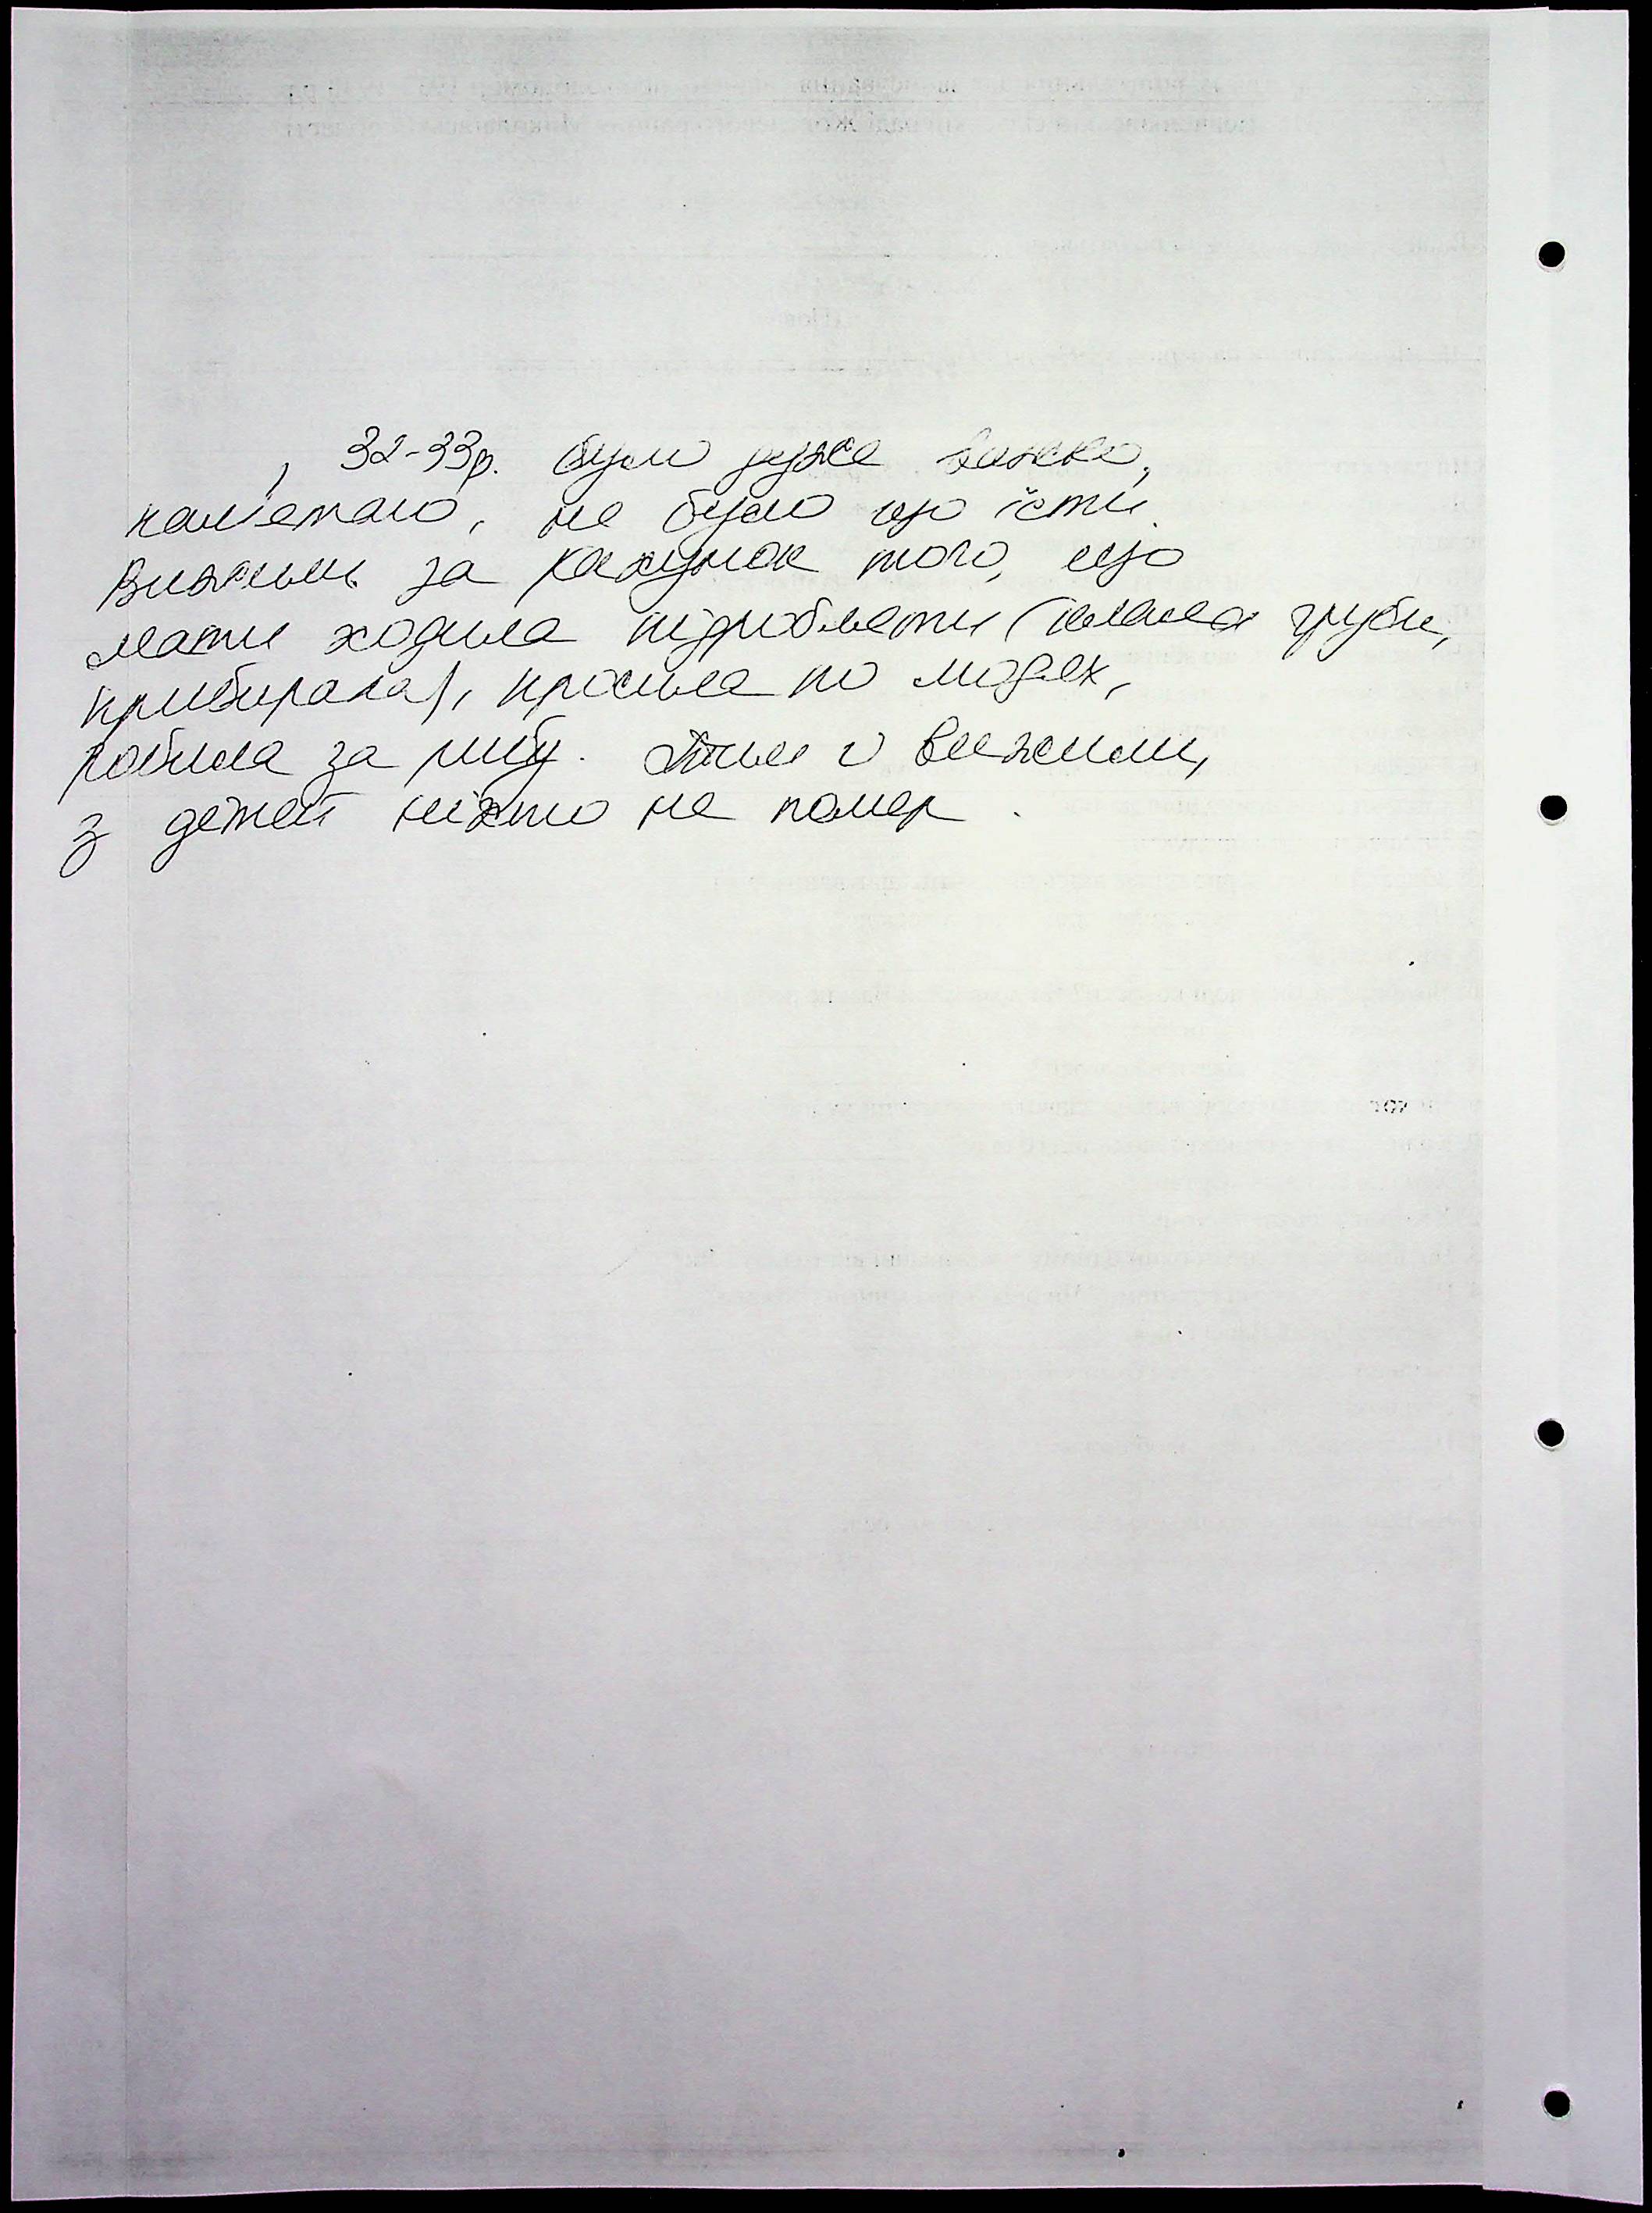 32-33р. було дуже важко,
пам'ятаю, не було що їсти.
Вижили за рахунок того, що
мати ходила підробляти (мазала груби,
прибирала), просила по людях,
робила за рибу. Тим і вижили,
з дітей ніхто не помер.